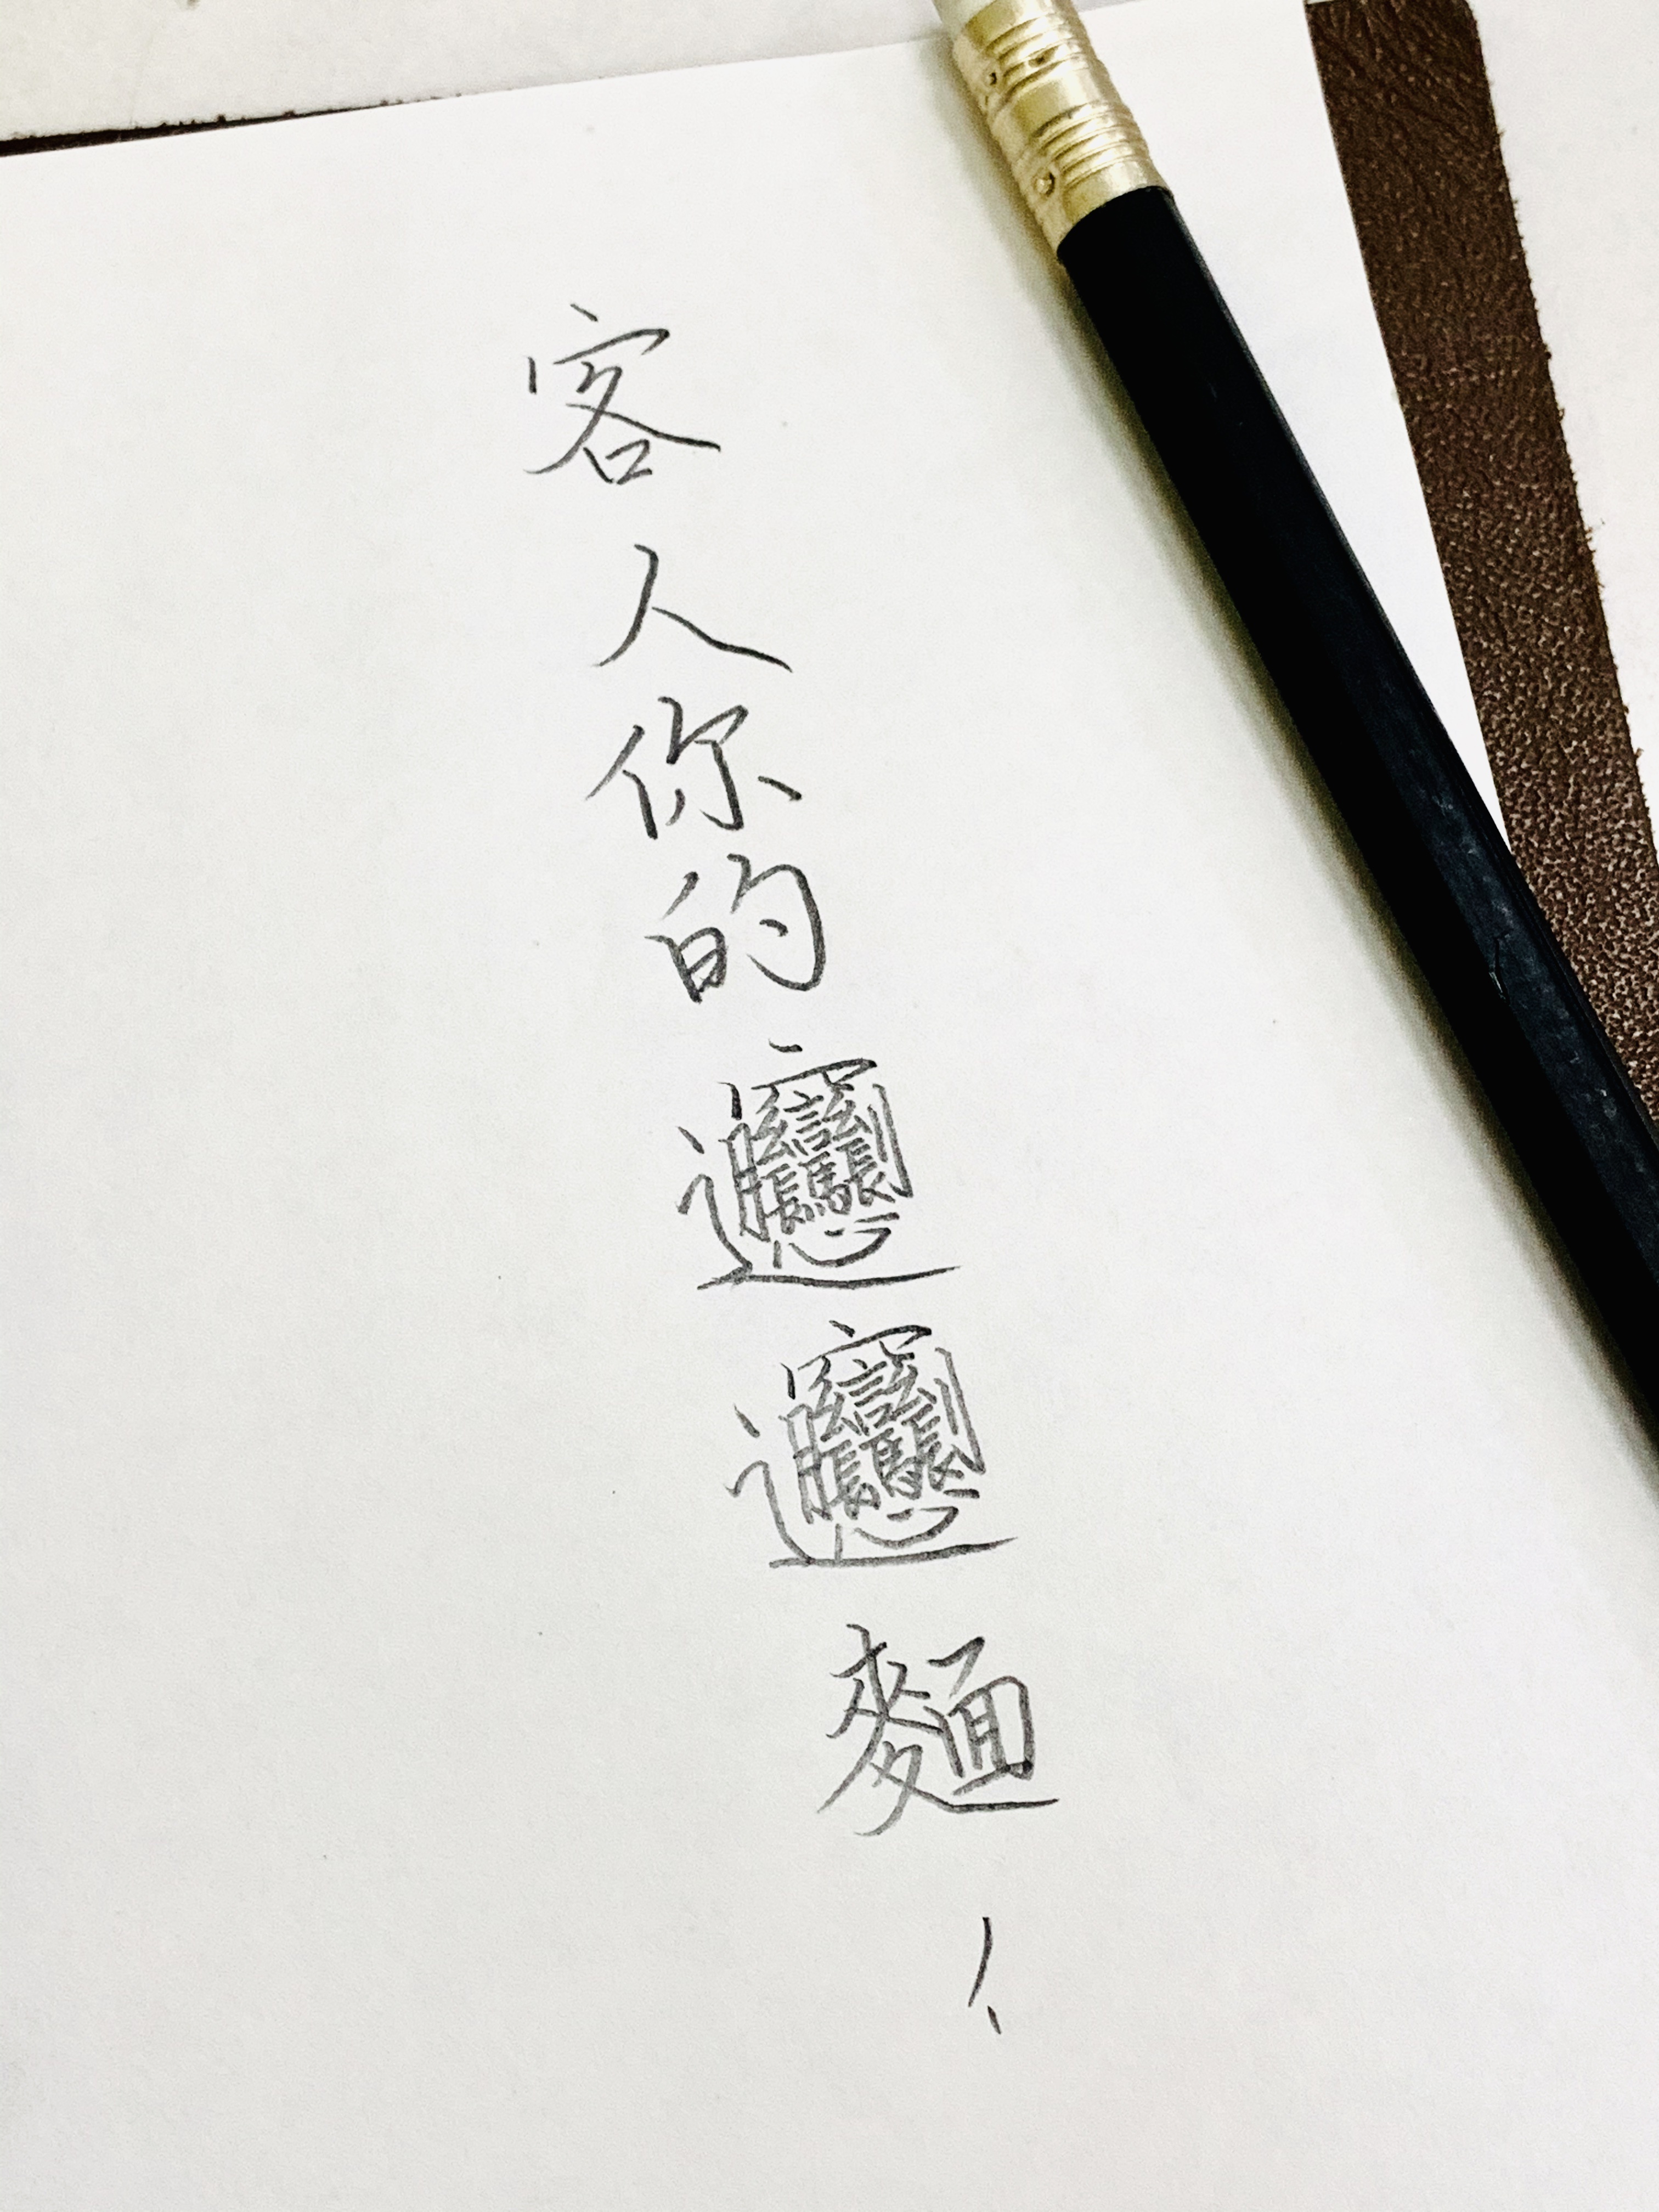 客人你的𰻞𰻞麵！